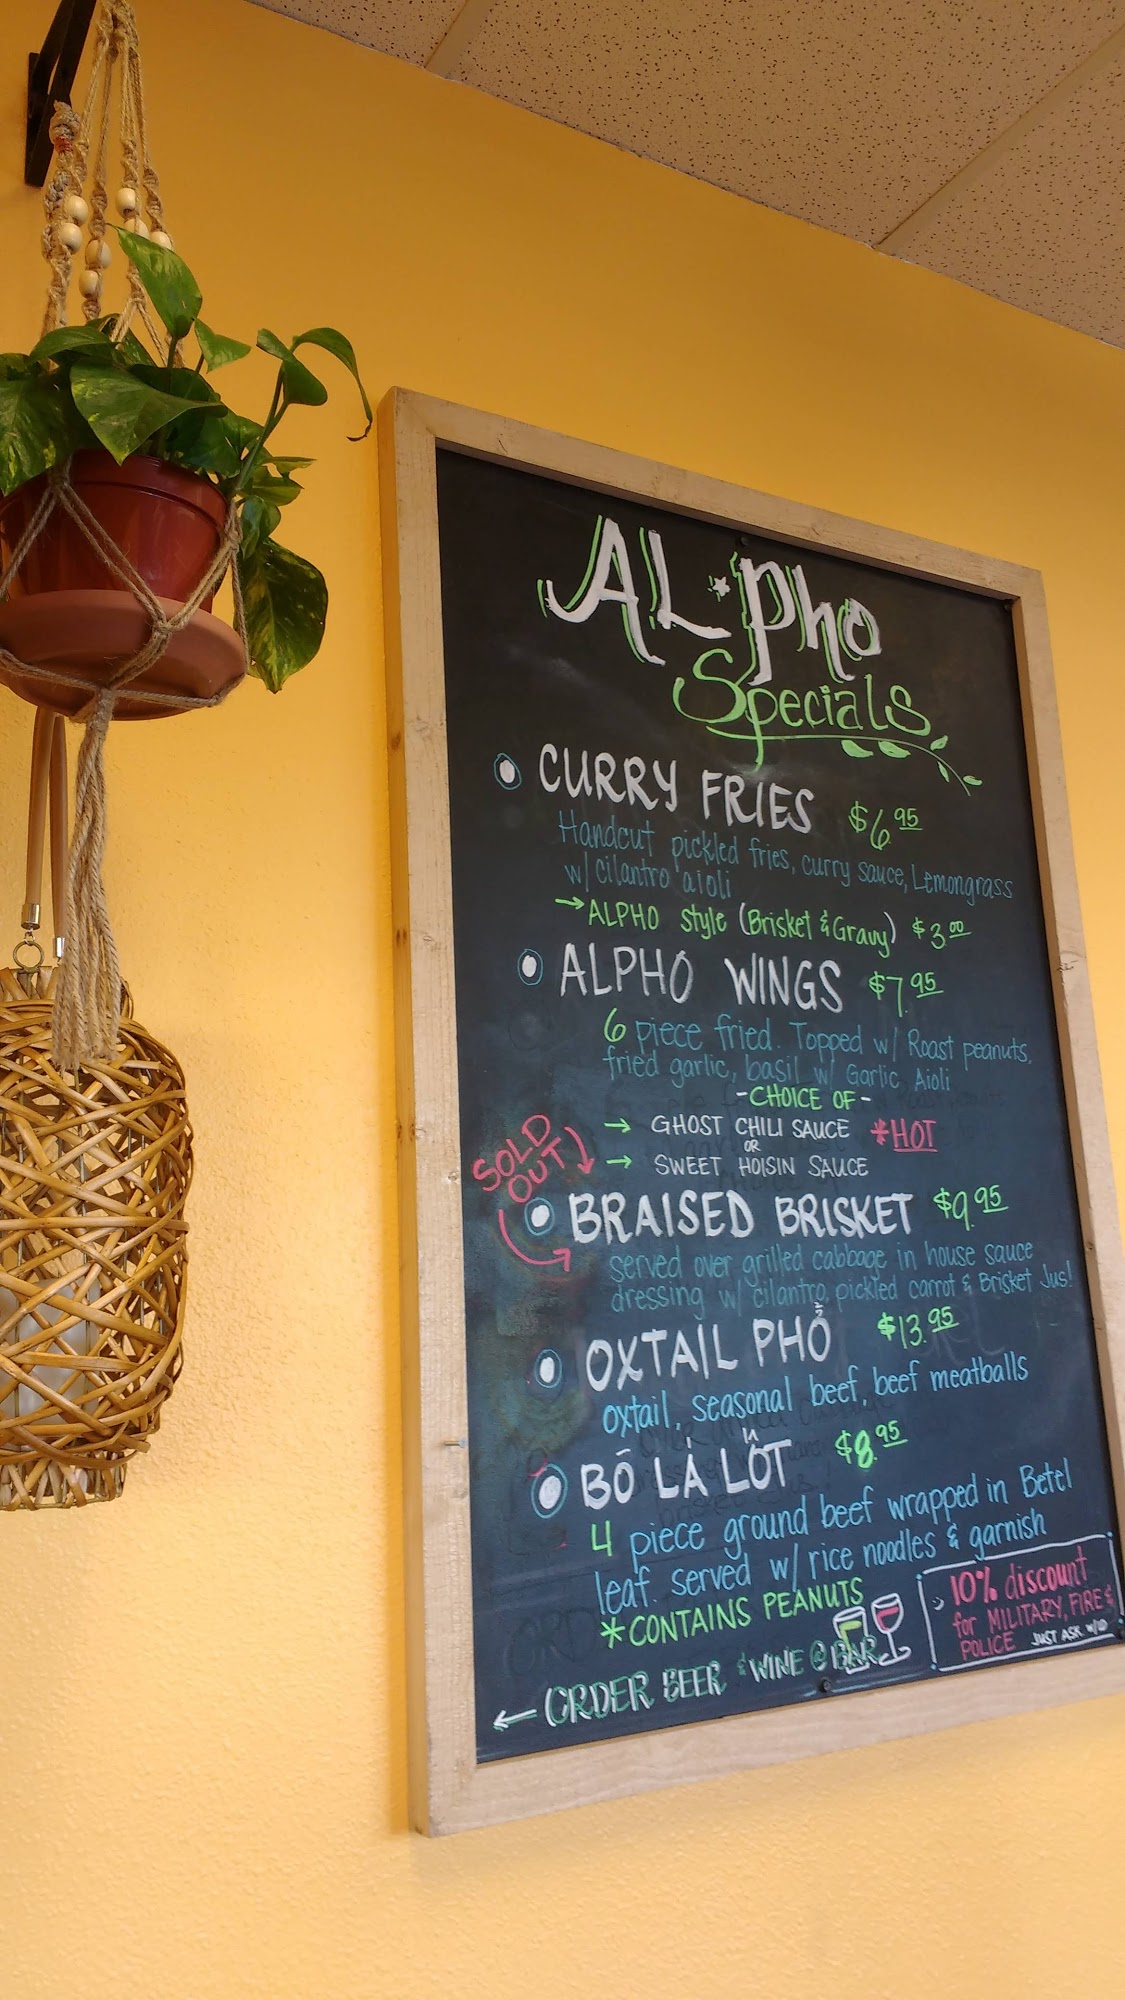 AL*Pho
Specials
CURRY FRIES $6.95
Handcut pickled fries, curry sauce, Lemongrass
w/ cilantro aioli
→ALPHO style (Brisket & Gravy) $3.00
ALPHO WINGS $7.95
6 piece fried. Topped w/ Roast peanuts,
fried garlic, basil w/ Garlic Aioli
-CHOICE OF-
→ GHOST CHILI SAUCE *HOT
OR
→ SWEET HOISIN SAUCE
SOLD
OUT
BRAISED BRISKET $9.95
served over grilled cabbage in house sauce
dressing w/ cilantro, pickled carrot & Brisket Jus!
OXTAIL PHỞ $13.95
oxtail, seasonal beef, beef meatballs
BÓ LÁ LỐT $8.95
4 piece ground beef wrapped in Betel
leaf. served w/ rice noodles & garnish
*CONTAINS PEANUTS
← ORDER BEER & WINE @ BAR
10% discount
for MILITARY, FIRE &
POLICE JUST ASK w/ID